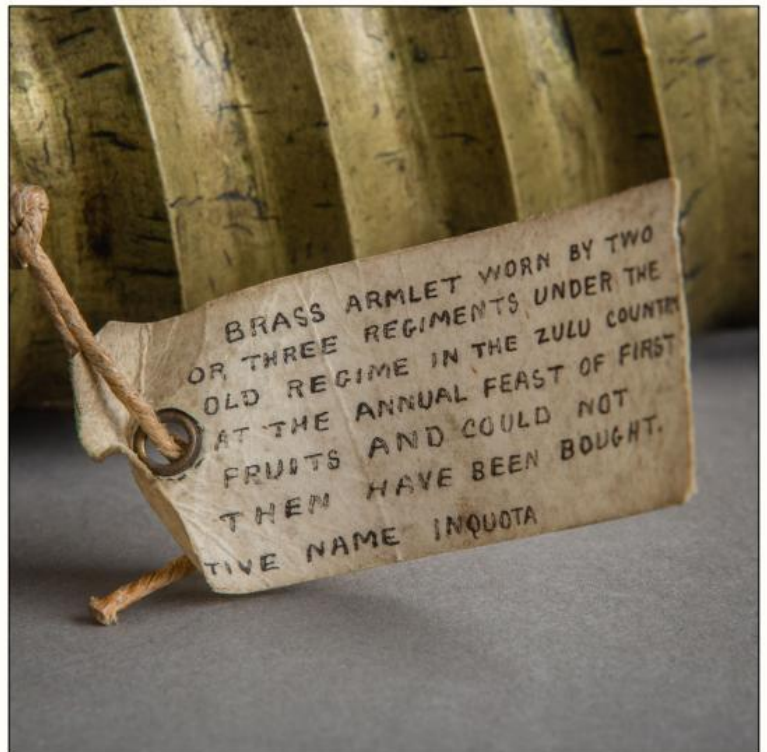 BRASS ARMLET WORN BY TWO
OR THREE REGIMENTS UNDER THE
OLD REGIME IN THE ZULU COUNTRY
AT THE ANNUAL FEAST OF FIRST
FRUITS AND COULD NOT
THEN HAVE BEEN BOUGHT.
TIVE NAME INQUOTA